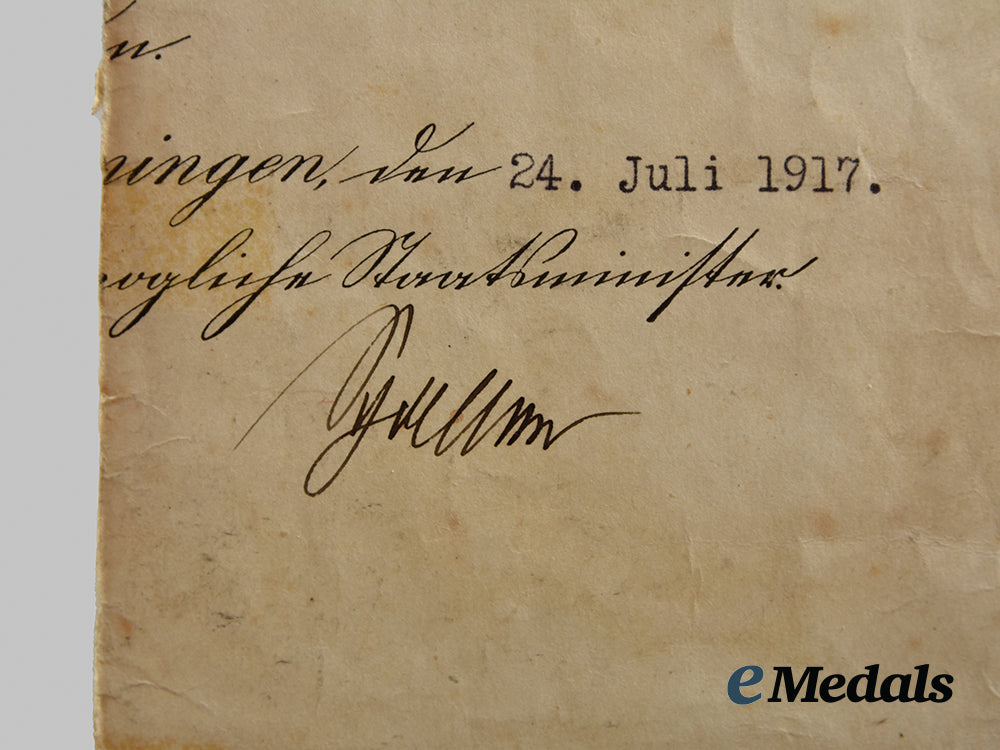 n.
ningen, den 24. Juli 1917.
zogliche Staatsminister.
eMedals